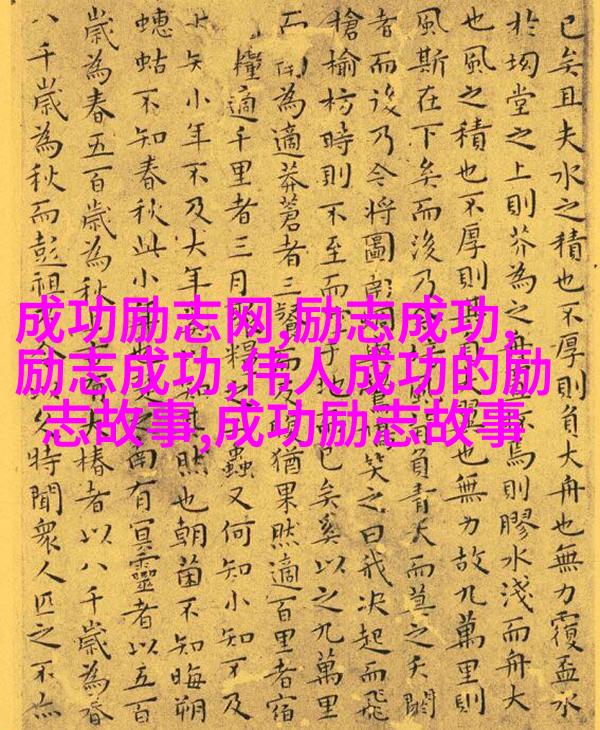 已矣且夫水之積也不厚則負大舟也無力覆盃水
於坳堂之上則芥為之舟焉則膠水淺而舟大
也風之積也不厚則其負大翼也無力故九萬里則
風斯在下矣而後乃今培風負青天而莫之夭閼
者而後乃今將圖南笑之曰我決起而飛
槍榆枋時則不至而于地而已矣奚以之九萬里
而為適莽蒼者三飡而反腹猶果然適百里者宿
糧適千里者三月糧之蟲又何知小知不及
大知小年不及大年知其然也朝菌不知晦朔
蟪蛄不知春秋此小年也之南有冥靈者以五百
歲為春五百歲為秋有大椿者以八千歲為春
八千歲為秋而彭祖今久特聞衆人匹之不亦
成功励志网,励志成功,
励志成功,伟人成功的励
志故事,成功励志故事